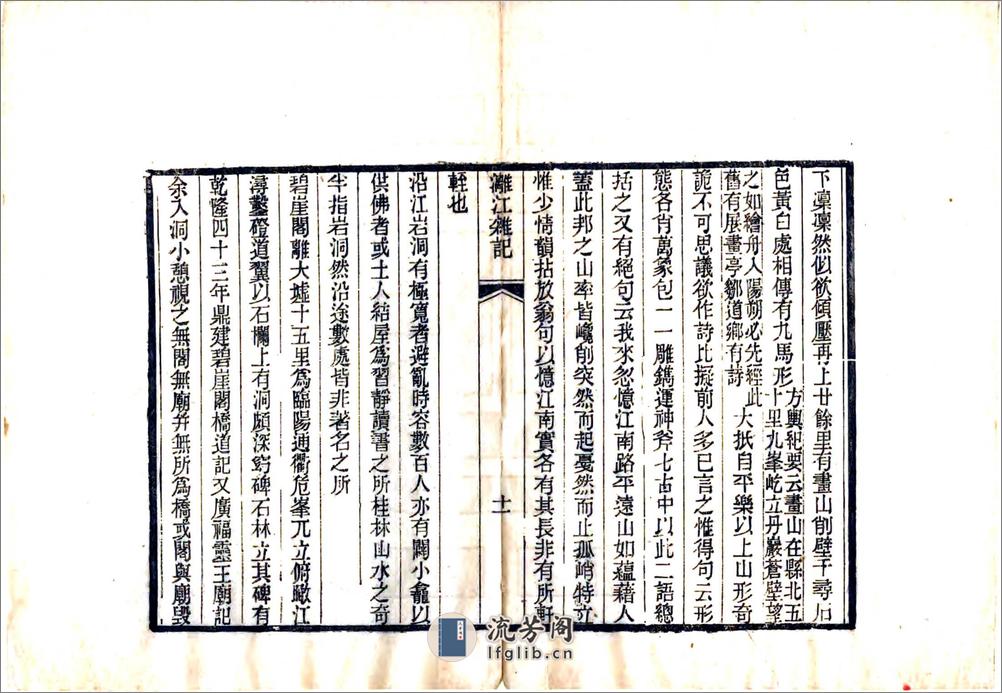 下凜凜然似欲傾壓再上廿餘里有畫山削壁千尋石
色黃白處相傳有九馬形方輿紀要云畫山在縣北五
十里九峯屹立丹巖蒼壁望
之如繪舟入陽朔必先經此
舊有展畫亭鄒道鄉有詩
大抵自平樂以上山形奇
詭不可思議欲作詩比擬前人多已言之惟得句云形
態各肖萬象包一一雕鐫運神斧七古中以此二語總
括之又有絕句云我來忽憶江南路平遠山如蘊藉人
蓋此邦之山率皆巉削突然而起戛然而止孤峭特立
惟少情韻拈放翁句以憶江南實各有其長非有所軒
輊也
灕江雜記
十一
沿江岩洞有極寬者避亂時容數百人亦有闢小龕以
供佛者或土人結屋爲習靜讀書之所桂林山水之奇
半指岩洞然沿途數處皆非著名之所
碧崖閣離大墟十五里爲臨陽通衢危峯兀立俯瞰江
潯鑿磴道翼以石欄上有洞頗深窈碑石林立其碑有
乾隆四十三年鼎建碧崖閣橋道記又廣福靈王廟記
余入洞小憩視之無閣無廟并無所爲橋或閣與廟毀
流芳阁
lfglib.cn